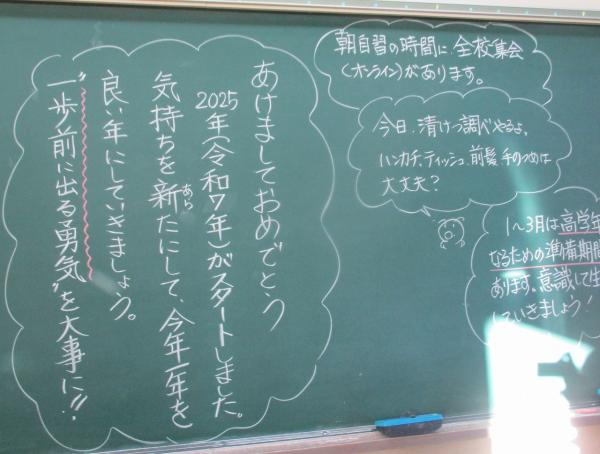 あけましておめでとう
2025年(令和7年)がスタートしました。
気持ちを新たにして、今年一年を
あら
良い年にしていきましょう。
"一歩前に出る勇気"を大事に!!
朝自習の時間に、全校集会
(オンライン)があります。
今日、清けつ調べやるよ。
ハンカチ、ティッシュ、前髪、手のつめは
大丈夫?
1~3月は高学年
なるための準備期間
あります。意識して生
していきましょう!